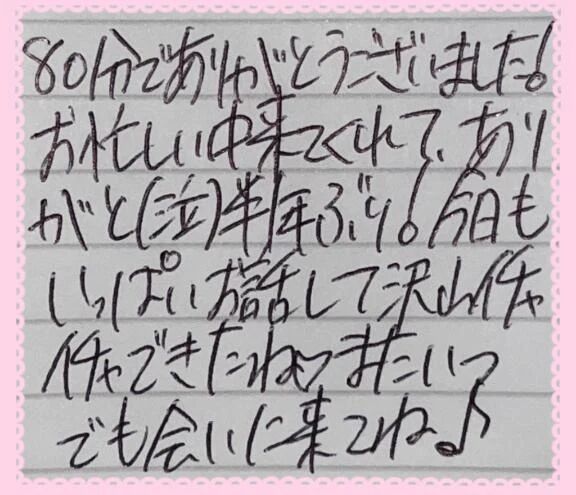 80分でありがとうございました!
お忙しい中来てくれて、あり
がと(泣)半年ぶり!今日も
いっぱいお話して沢山イチャ
イチャできたねっまたいつ
でも会いに来てね♪